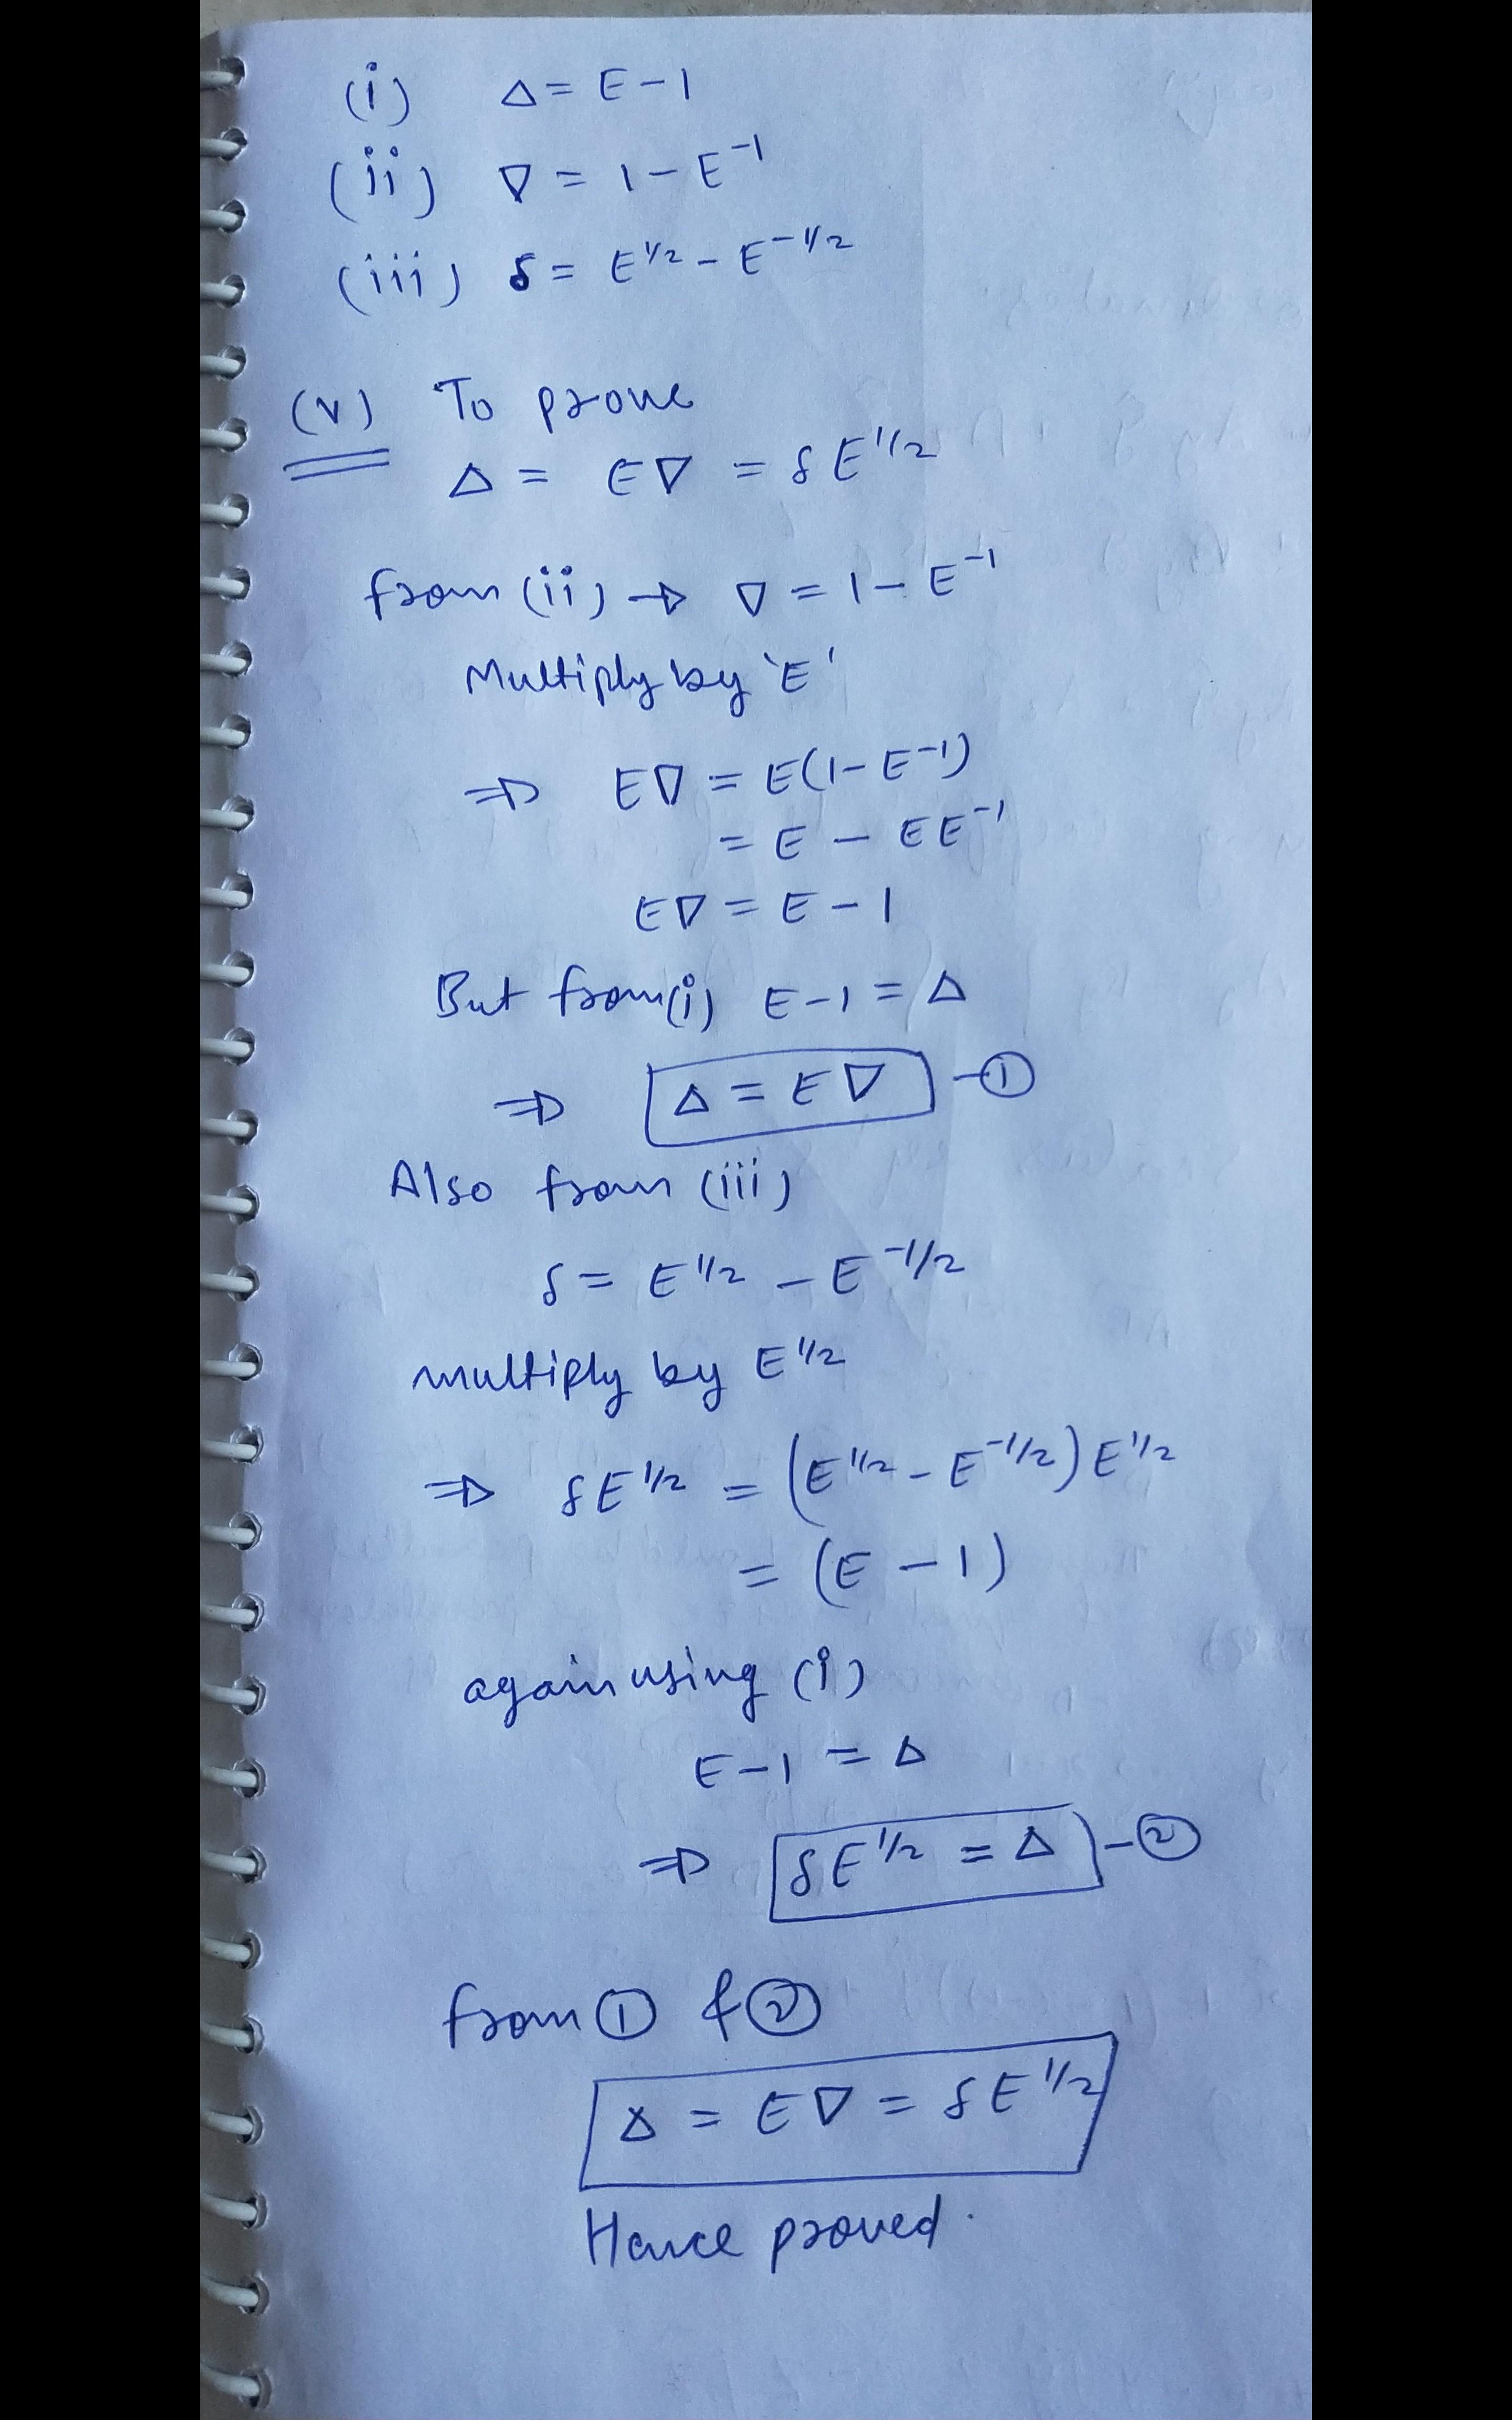 (i) Δ = E - 1
(ii) ∇ = 1 - E⁻¹
(iii) δ = E^1/2 - E^-1/2
(v) To prove
Δ = E∇ = δE^1/2
from (ii) → ∇ = 1 - E⁻¹
Multiply by 'E'
⇒ E∇ = E(1 - E⁻¹)
= E - EE⁻¹
E∇ = E - 1
But from (i) E - 1 = Δ
⇒ Δ = E∇ - ①
Also from (iii)
δ = E^1/2 - E^-1/2
multiply by E^1/2
⇒ δE^1/2 = (E^1/2 - E^-1/2) E^1/2
= (E - 1)
again using (i)
E - 1 = Δ
⇒ δE^1/2 = Δ - ②
from ① & ②
Δ = E∇ = δE^1/2
Hence proved.